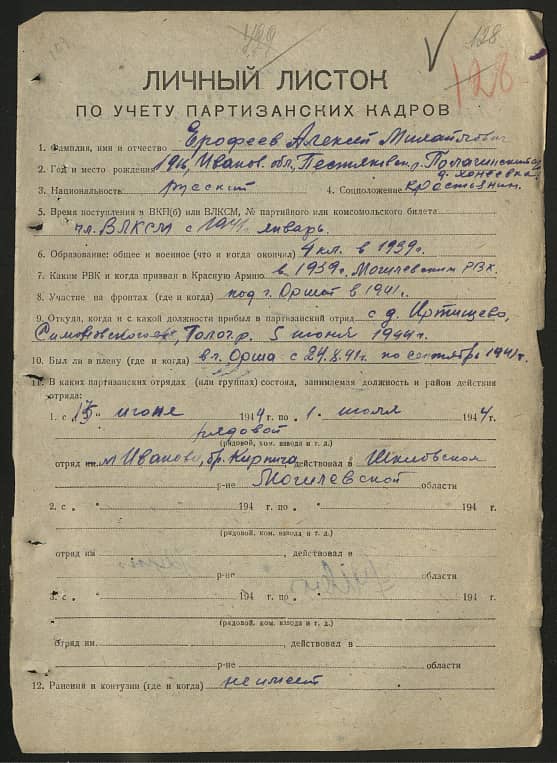 128
128
ЛИЧНЫЙ ЛИСТОК
ПО УЧЕТУ ПАРТИЗАНСКИХ КАДРОВ
1. Фамилия, имя и отчество Ерофеев Алексей Михайлович
2. Год и место рождения 1916, Иванов. обл., Пестяковск. р.
д.
3. Национальность русский 4. Соцположение крестьянин.
5. Время поступления в ВКП(б) или ВЛКСМ, № партийного или комсомольского билета
чл. ВЛКСМ с январь.
6. Образование: общее и военное (что и когда окончил) 4 кл. в 1939г.
7. Каким РВК и когда призван в Красную Армию в 1939г. Могилевским РВК
8. Участие на фронтах (где и когда) под г. Оршей в 1941г.
9. Откуда, когда и с какой должности прибыл в партизанский отряд с д.
5 июня 1944г.
10. Был ли в плену (где и когда) в г. Орша с 24.8.41г. по сентябрь 1941г.
11. В каких партизанских отрядах (или группах) состоял, занимаемая должность и район действия
отряда:
1. с 15 июня 1944 г. по 1. июля 1944 г.
рядовой
(рядовой, ком. взвода и т. д.)
отряд им. Иванова, бр. Кирпича действовал в Шкловском
р-не Могилевской области
2. с „ " 194 г. по „ " 194 г.
(рядовой, ком. взвода и т. д.)
отряд им , действовал в
р-не области
3. с „ " 194 г. по „ " 194 г.
(рядовой, ком. взвода и т. д.)
отряд им. , действовал в
р-не области
12. Ранения и контузии (где и когда) не имеет